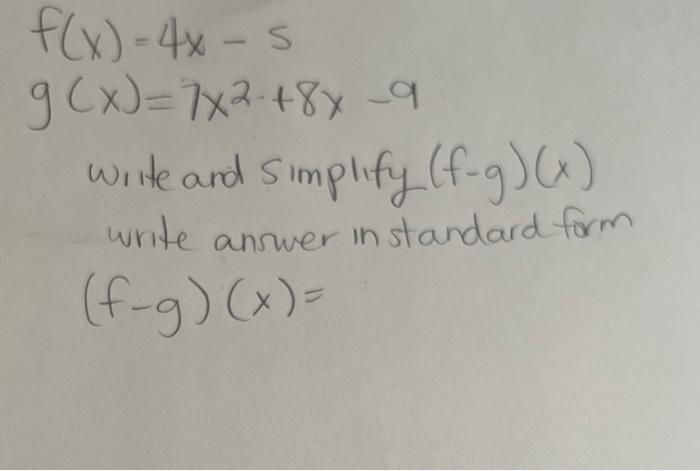 f(x)=4x - 5
g(x)=7x2+8x -9
write and simplify (f-g)(x)
write answer in standard form
(f-g)(x)=